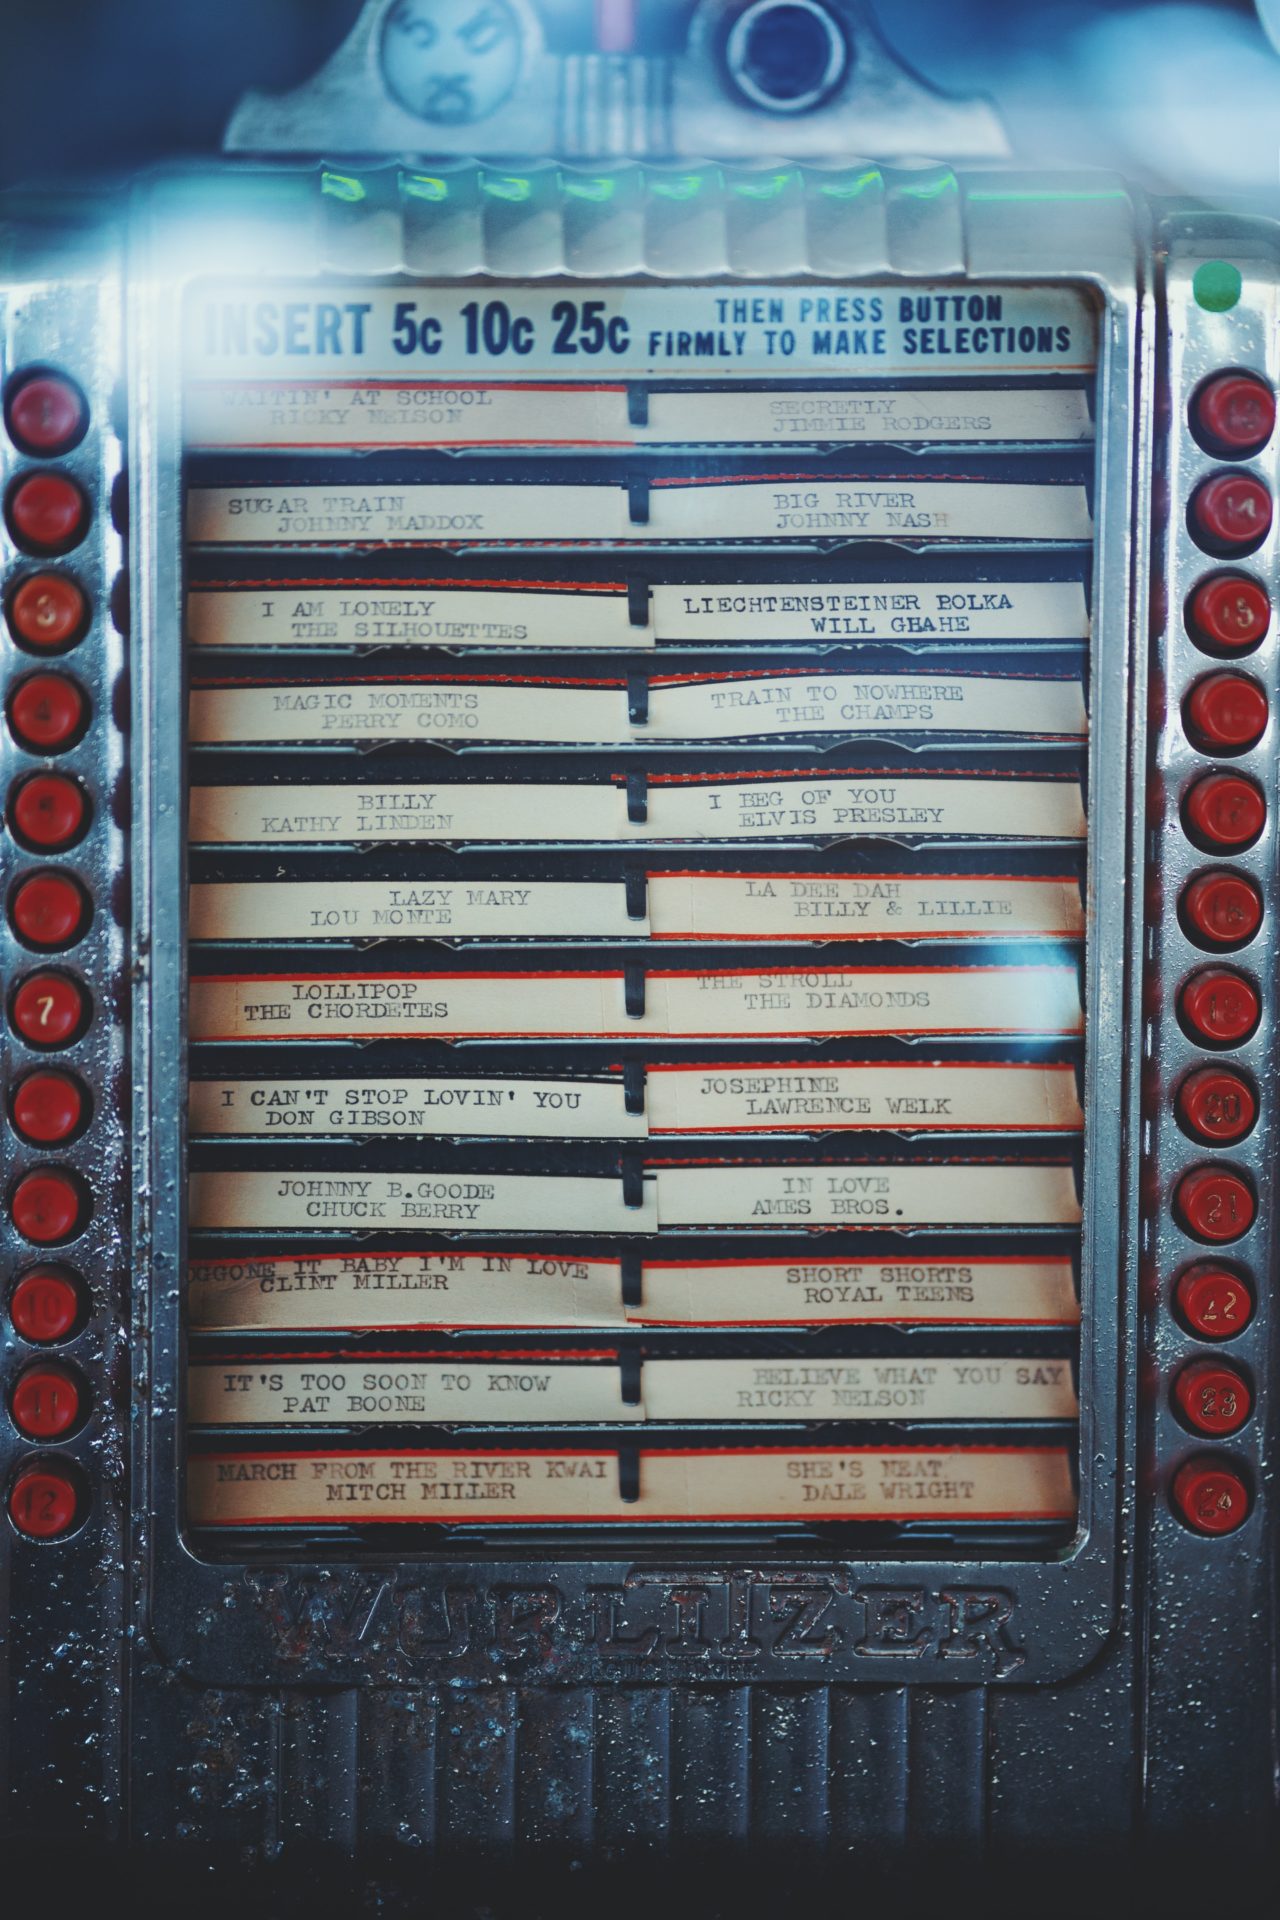 INSERT 5c 10c 25c
THEN PRESS BUTTON
FIRMLY TO MAKE SELECTIONS
WAITIN' AT SCHOOL
RICKY NELSON
SECRETLY
JIMMIE RODGERS
SUGAR TRAIN
JOHNNY MADDOX
BIG RIVER
JOHNNY NASH
I AM LONELY
THE SILHOUETTES
LIECHTENSTEINER POLKA
WILL GHAHE
MAGIC MOMENTS
PERRY COMO
TRAIN TO NOWHERE
THE CHAMPS
BILLY
KATHY LINDEN
I BEG OF YOU
ELVIS PRESLEY
LAZY MARY
LOU MONTE
LA DEE DAH
BILLY & LILLIE
LOLLIPOP
THE CHORDETES
THE STROLL
THE DIAMONDS
I CAN'T STOP LOVIN' YOU
DON GIBSON
JOSEPHINE
LAWRENCE WELK
JOHNNY B.GOODE
CHUCK BERRY
IN LOVE
AMES BROS.
OGGONE IT BABY I'M IN LOVE
CLINT MILLER
SHORT SHORTS
ROYAL TEENS
IT'S TOO SOON TO KNOW
PAT BOONE
BELIEVE WHAT YOU SAY
RICKY NELSON
MARCH FROM THE RIVER KWAI
MITCH MILLER
SHE'S NEAT
DALE WRIGHT
3
4
7
10
11
12
15
17
18
19
20
21
22
23
24
WURLITZER